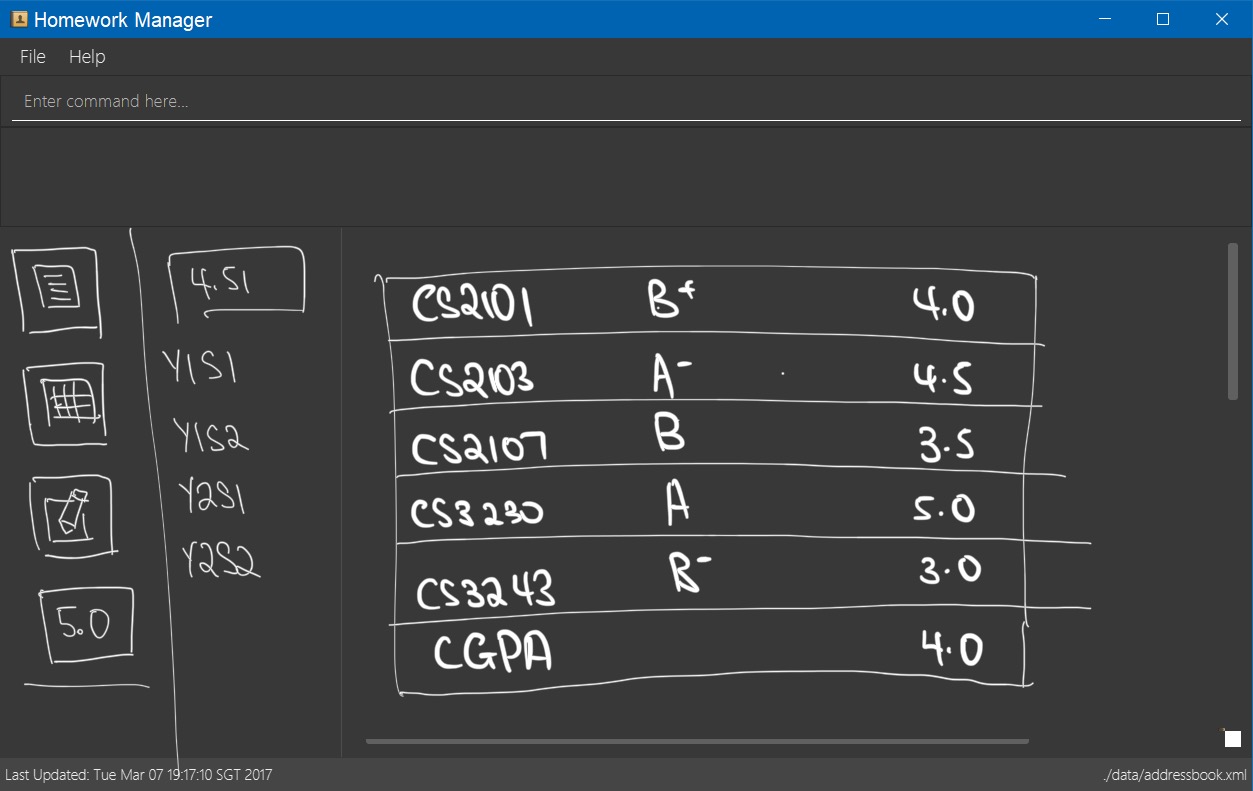 Homework Manager
File Help
Enter command here...
4.51
Y1S1
Y1S2
Y2S1
Y2S2
5.0
CS2101 B+ 4.0
CS2103 A- 4.5
CS2107 B 3.5
CS3230 A 5.0
CS3243 B- 3.0
CGPA 4.0
Last Updated: Tue Mar 07 19:17:10 SGT 2017 ./data/addressbook.xml